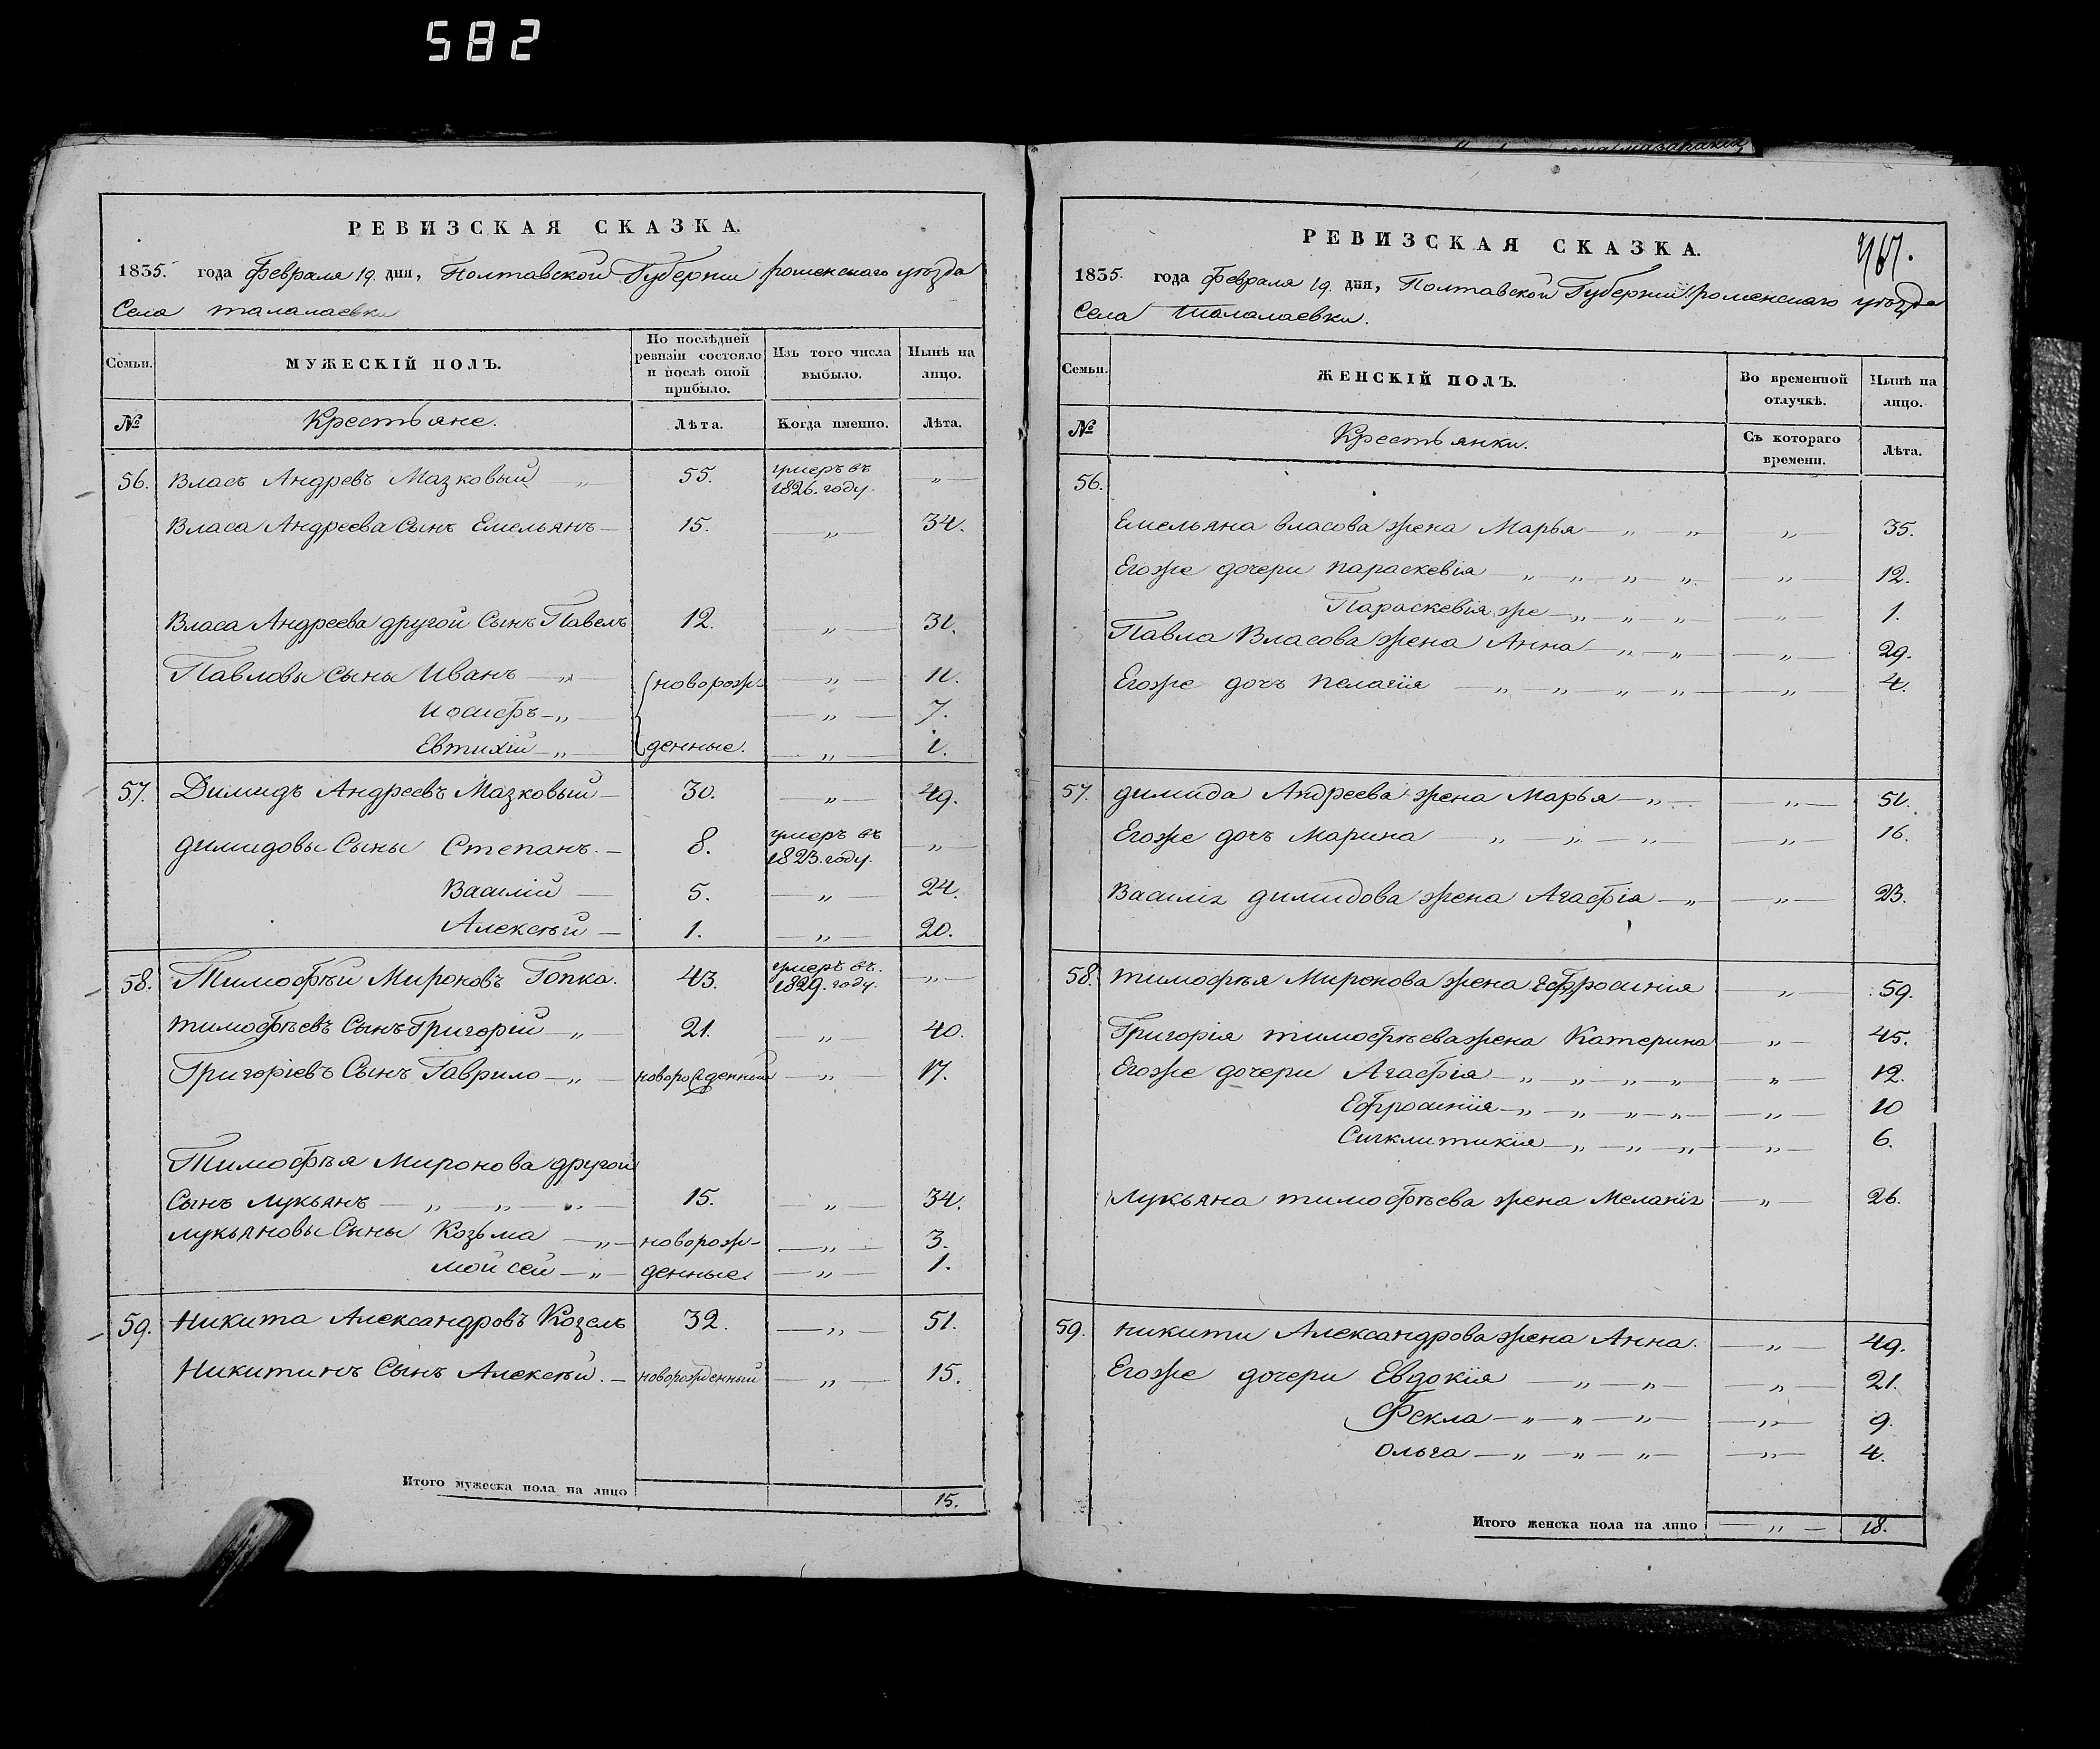 582
РЕВИЗСКАЯ СКАЗКА.
1835. года Февраля 19. дня, Полтавской Губернии роменскаго уѣзда
Села талалаевки
Семьи. МУЖЕСКІЙ ПОЛЪ. По послѣдней ревизіи состояло и послѣ оной прибыло. Изъ того числа выбыло. Нынѣ на лицо.
№ Крестьяне. Лѣта. Когда именно. Лѣта.
56. Власъ Андревъ Мазковый „ 55. умеръ въ 1826. году. „
Власа Андреева Сынъ Емельянъ 15. „ 34.
Власа Андреева другой Сынъ Павелъ 12. „ 31.
Павловы Сыны Иванъ „ новорож- „ 11.
Иосифъ „ „ 7.
Евтихій „ денные. „ 1.
57. Димидъ Андреевъ Мазковый 30. „ 49.
димидовы Сыны Степанъ. 8. умеръ въ 1823. году. „
Василій 5. „ 24.
Алексѣй 1. „ 20.
58. Тимофѣй Мироновъ Гопка. 43. умеръ въ. 1829. году. „
тимофѣевъ Сынъ Григорій „ 21. „ 40.
Григоріевъ Сынъ Гаврило „ новорожденный „ 17.
Тимофѣя Миронова другой
Сынъ Лукьянъ „ „ „ 15. „ 34.
лукьяновы Сыны Козьма „ новорож- „ 3.
Мойсей „ денные. „ 1.
59. Никита Александровъ Козелъ 32. „ 51.
Никитинъ Сынъ Алексѣй. новорожденный „ 15.
Итого мужеска пола на лицо 15.
РЕВИЗСКАЯ СКАЗКА.
1835. года Февраля 19. дня, Полтавской Губерніи роменскаго уѣзда
Села Талалаевки.
Семьи. ЖЕНСКІЙ ПОЛЪ. Во временной отлучкѣ. Нынѣ на лицо.
№ Крестьянки. Съ котораго времени. Лѣта.
56.
Емельяна власова жена Марья „ „ „ 35.
Егоже дочери параскевія „ „ „ „ „ 12.
Параскевія же „ „ „ „ 1.
Павла Власова жена Анна „ „ „ 29.
Егоже дочь пелагія „ „ „ „ „ 4.
57. димида Андреева жена Марья „ „ 51.
Егоже дочь Марина „ „ „ „ 16.
Василія димидова жена Агафія „ „ 23.
58. тимофѣя Миронова жена Ефросинія „ 59.
Григорія тимофѣева жена Катерина „ 45.
Егоже дочери Агафія „ „ „ „ „ 12.
Ефросинія „ „ „ „ „ 10
Сигклитикія „ „ „ „ 6.
Лукьяна тимофѣева жена Меланія „ 26.
59. никити Александрова жена Анна. „ 49.
Егоже дочери Евдокія „ „ „ 21.
Фекла „ „ „ „ 9.
Ольга „ „ „ „ 4.
Итого женска пола на лицо „ 18.